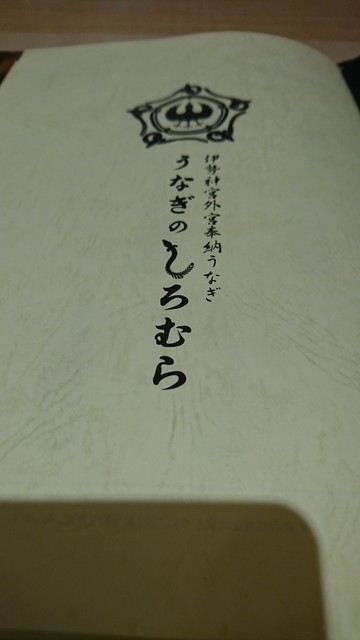 伊勢神宮外宮奉納うなぎ
うなぎの しろむら